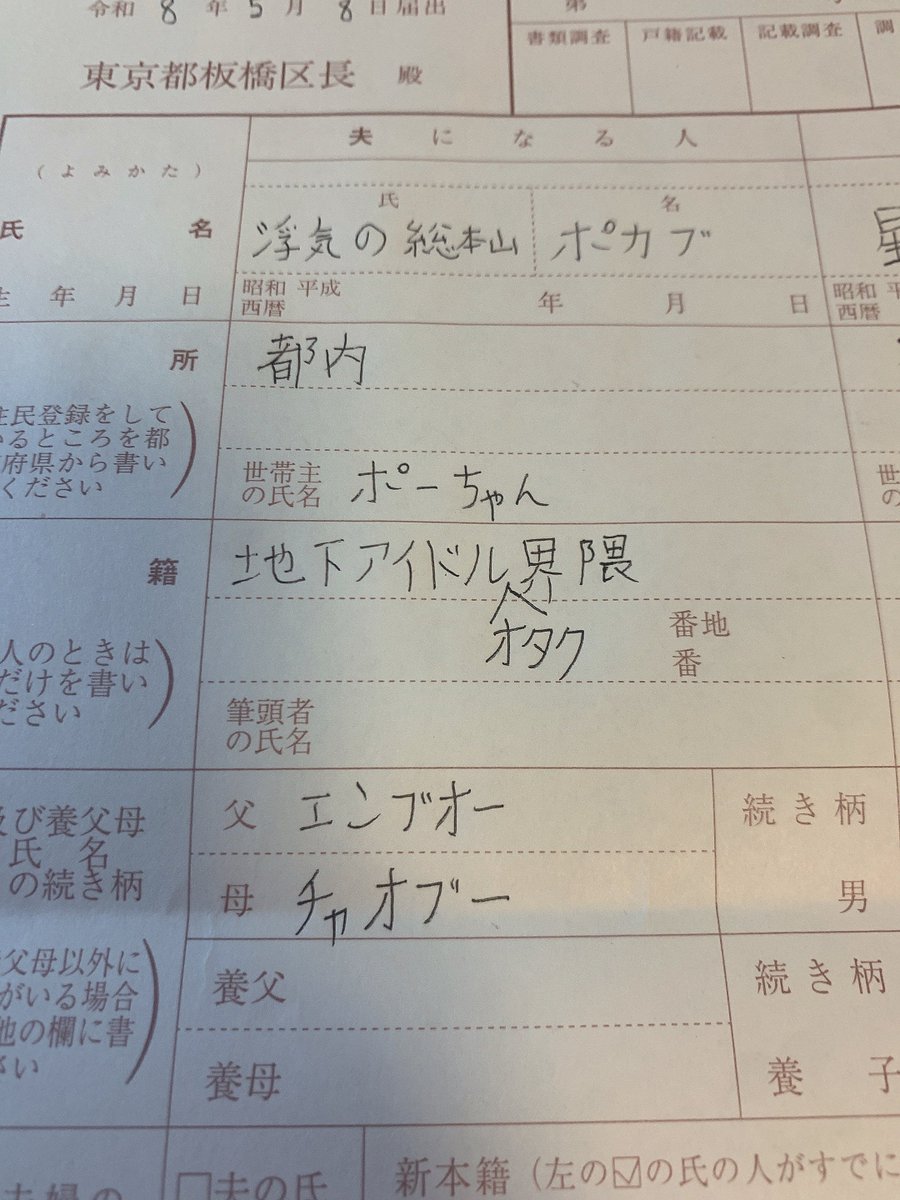 令和 8 年 5 月 8 日届出
第
東京都板橋区長 殿
書類調査 戸籍記載 記載調査 調
夫になる人
(よみかた)
氏 名
氏名 浮気の総本山 ポカブ 星
生年月日 昭和 平成 西暦 年 月 日 昭和 平 西暦
所 都内
住民登録をして
いるところを都
府県から書い
ください
世帯主の氏名 ポーちゃん 世 の
籍 地下アイドル界隈
へオタク 番地 番
人のときは
だけを書い
ださい
筆頭者の氏名
及び養父母
氏名
の続き柄
父 エンブオー 続き柄
母 チャオブー 男
父母以外に
がいる場合
他の欄に書
さい
養父 続き柄
養母 養子
夫婦の
□夫の氏 新本籍(左の☑の氏の人がすでに